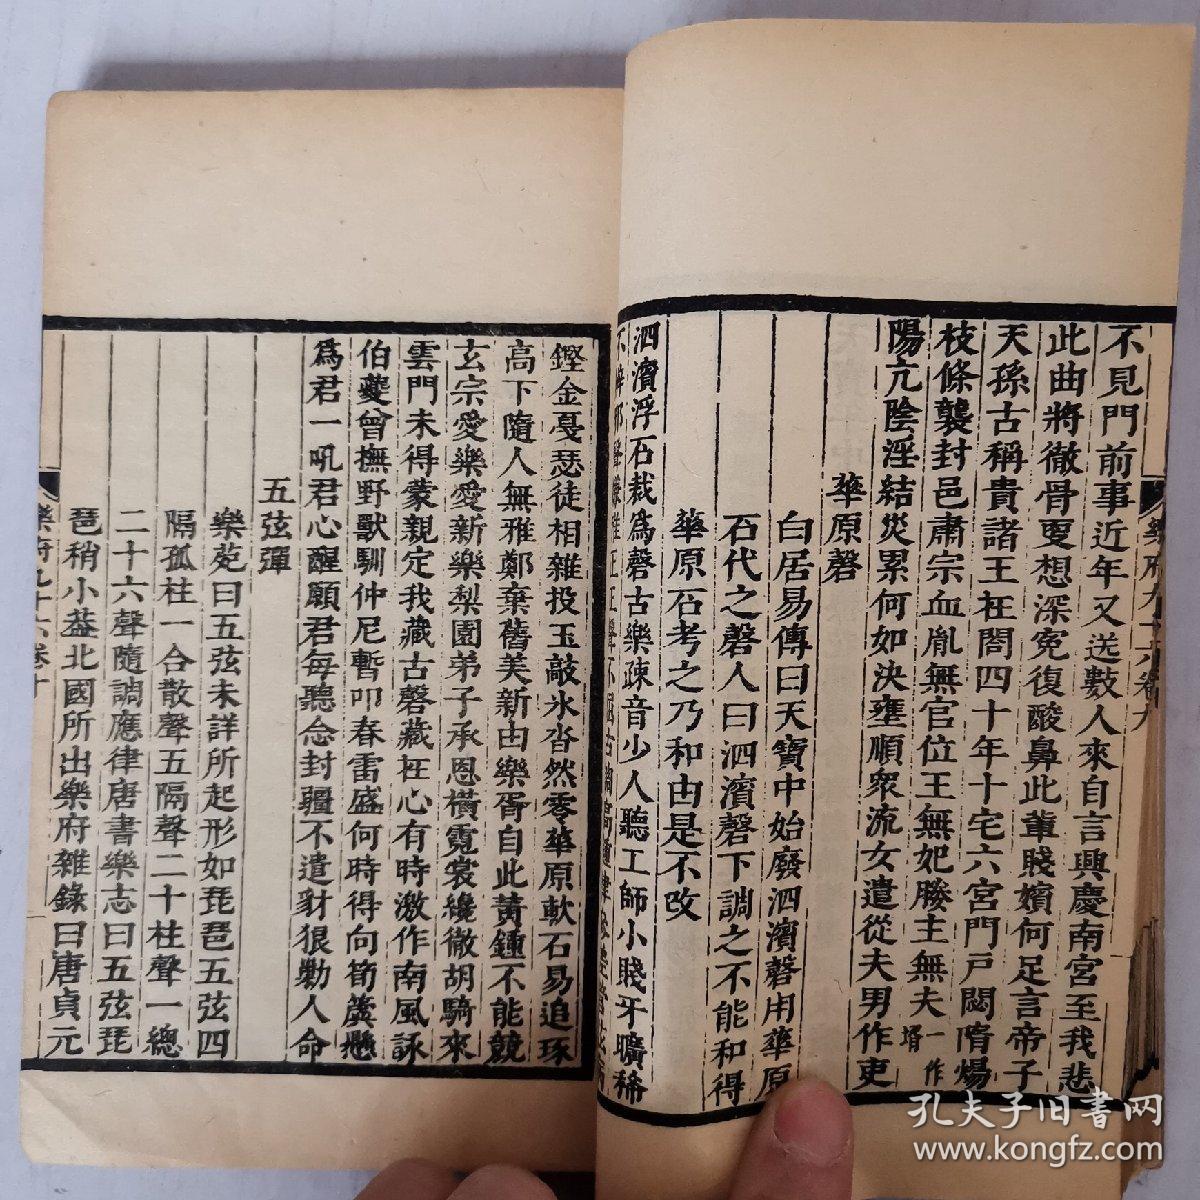 樂府九十六卷九
不見門前事近年又送數人來自言興慶南宮至我悲
此曲將徹骨更想深寃復酸鼻此輩賤嬪何足言帝子
天孫古稱貴諸王在閣四十年十宅六宮門戶閟隋煬
枝條襲封邑肅宗血胤無官位王無妃媵主無夫一作壻
陽亢陰淫結災累何如決壅順衆流女遣從夫男作吏
華原磬
白居易傳曰天寶中始廢泗濱磬用華原
石代之磬人曰泗濱磬下調之不能和得
華原石考之乃和由是不改
泗濱浮石裁爲磬古樂疎音少人聽工師小賤牙曠稀
鏗金戛瑟徒相雜投玉敲氷杳然零華原軟石易追琢
高下隨人無雅鄭棄舊美新由樂胥自此黃鍾不能競
玄宗愛樂愛新樂梨園弟子承恩橫霓裳纔徹胡騎來
雲門未得蒙親定我藏古磬藏在心有時激作南風詠
伯夔曾撫野獸馴仲尼暫叩春雷盛何時得向筍簴懸
爲君一吼君心醒願君每聽念封疆不遣豺狼勦人命
五弦彈
樂苑曰五弦未詳所起形如琵琶五弦四
隔孤柱一合散聲五隔聲二十柱聲一總
二十六聲隨調應律唐書樂志曰五弦琵
琶稍小葢北國所出樂府雜錄曰唐貞元
樂府九十六卷十
孔夫子旧书网
www.kongfz.com